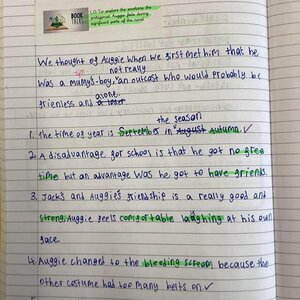 L.O: To explore the emotions the
protagonist, Auggie feels during
significant parts of the novel
BOOK
TALK
We thought of Auggie when we first met him that he
not really
was a mumys-boy, an outcast who would probably be
alone.
frienless and a loner.
the season
1. the time of year is September in August autumn. ✓
2. A disadvantage for school is that he got no free
time but an advantage was he got to have friends.
3. Jack's and Auggie's friendship is a really good and
strong, Auggie feels comfortable laughing at his own
face.
4. Auggie changed to the bleeding scream because the
other costume had too many belts on ✓